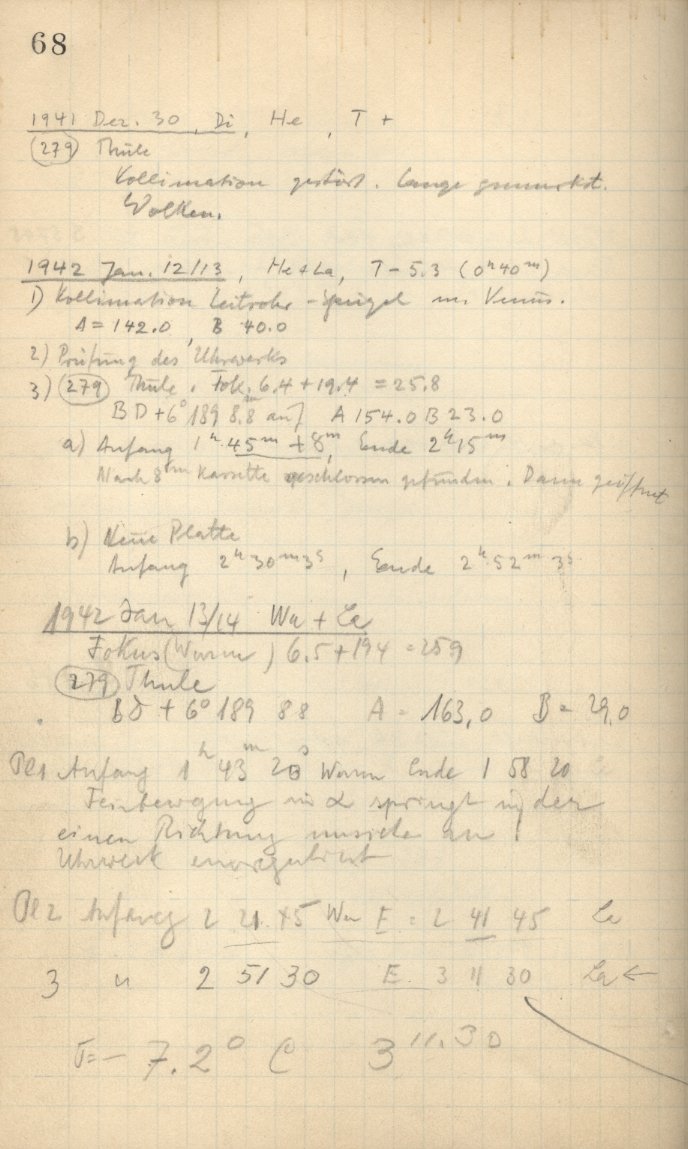 68
1941 Dez. 30, Di, He, T +
(279) Thule
Kollimation gestört. Lange gemurkst.
Wolken.
1942 Jan. 12/13, He + La, T - 5.3 (0h 40m)
1) Kollimation Leitrohr - Spiegel m. Venus.
A = 142.0, B 40.0
2) Prüfung des Uhrwerks
3) (279) Thule. Fok. 6.4 + 19.4 = 25.8
BD + 6° 189 8.8m auf A 154.0 B 23.0
a) Anfang 1h 45m + 8m, Ende 2h 15m
Nach 8m Kassette geschlossen gefunden. Dann geöffnet
b) Neue Platte
Anfang 2h 30m 3s, Ende 2h 52m 3s
1942 Jan 13/14 Wu + La
Fokus ( ) 6.5 + 194 = 259
(279) Thule
BD + 6° 189 88 A = 163,0 B = 29,0
Pl 1 Anfang 1h 43m Ende 1 58 20
Feinbewegung in α springt in der
einen Richtung an!
Uhrwerk
Pl 2 Anfang 2 21 45 Wu E = 2 41 45 La
3 " 2 51 30 E. 3 11 30 La ←
T = - 7.2° C 3 11.30